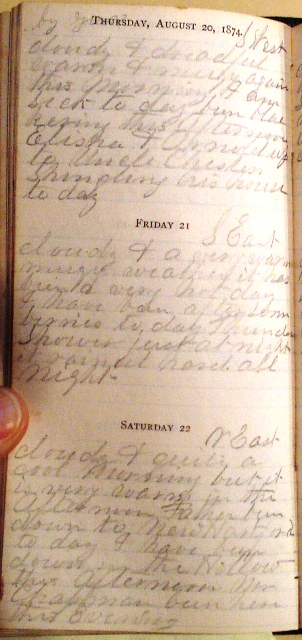 by
THURSDAY, AUGUST 20, 1874.
S East
cloudy & dreadful
warm & muggy again
this morning I am
sick to day bin black
bering this afternoon
Elisha & Arnold up
to Uncle Chesters
Shingling his house
to day
FRIDAY 21
S East
cloudy & a very warm
muggy weather it has
bin a very hot day
I have bin after som
berries to day Thunder
Shower just at night
& rained hard all
night
SATURDAY 22
N East
cloudy & quite a
cool Morning but it
is very warm in the
afternoon Father bin
down to New Hartford
to day I have bin
down in the Hollow
this afternoon Mrs
Chapman bin here
this Evening